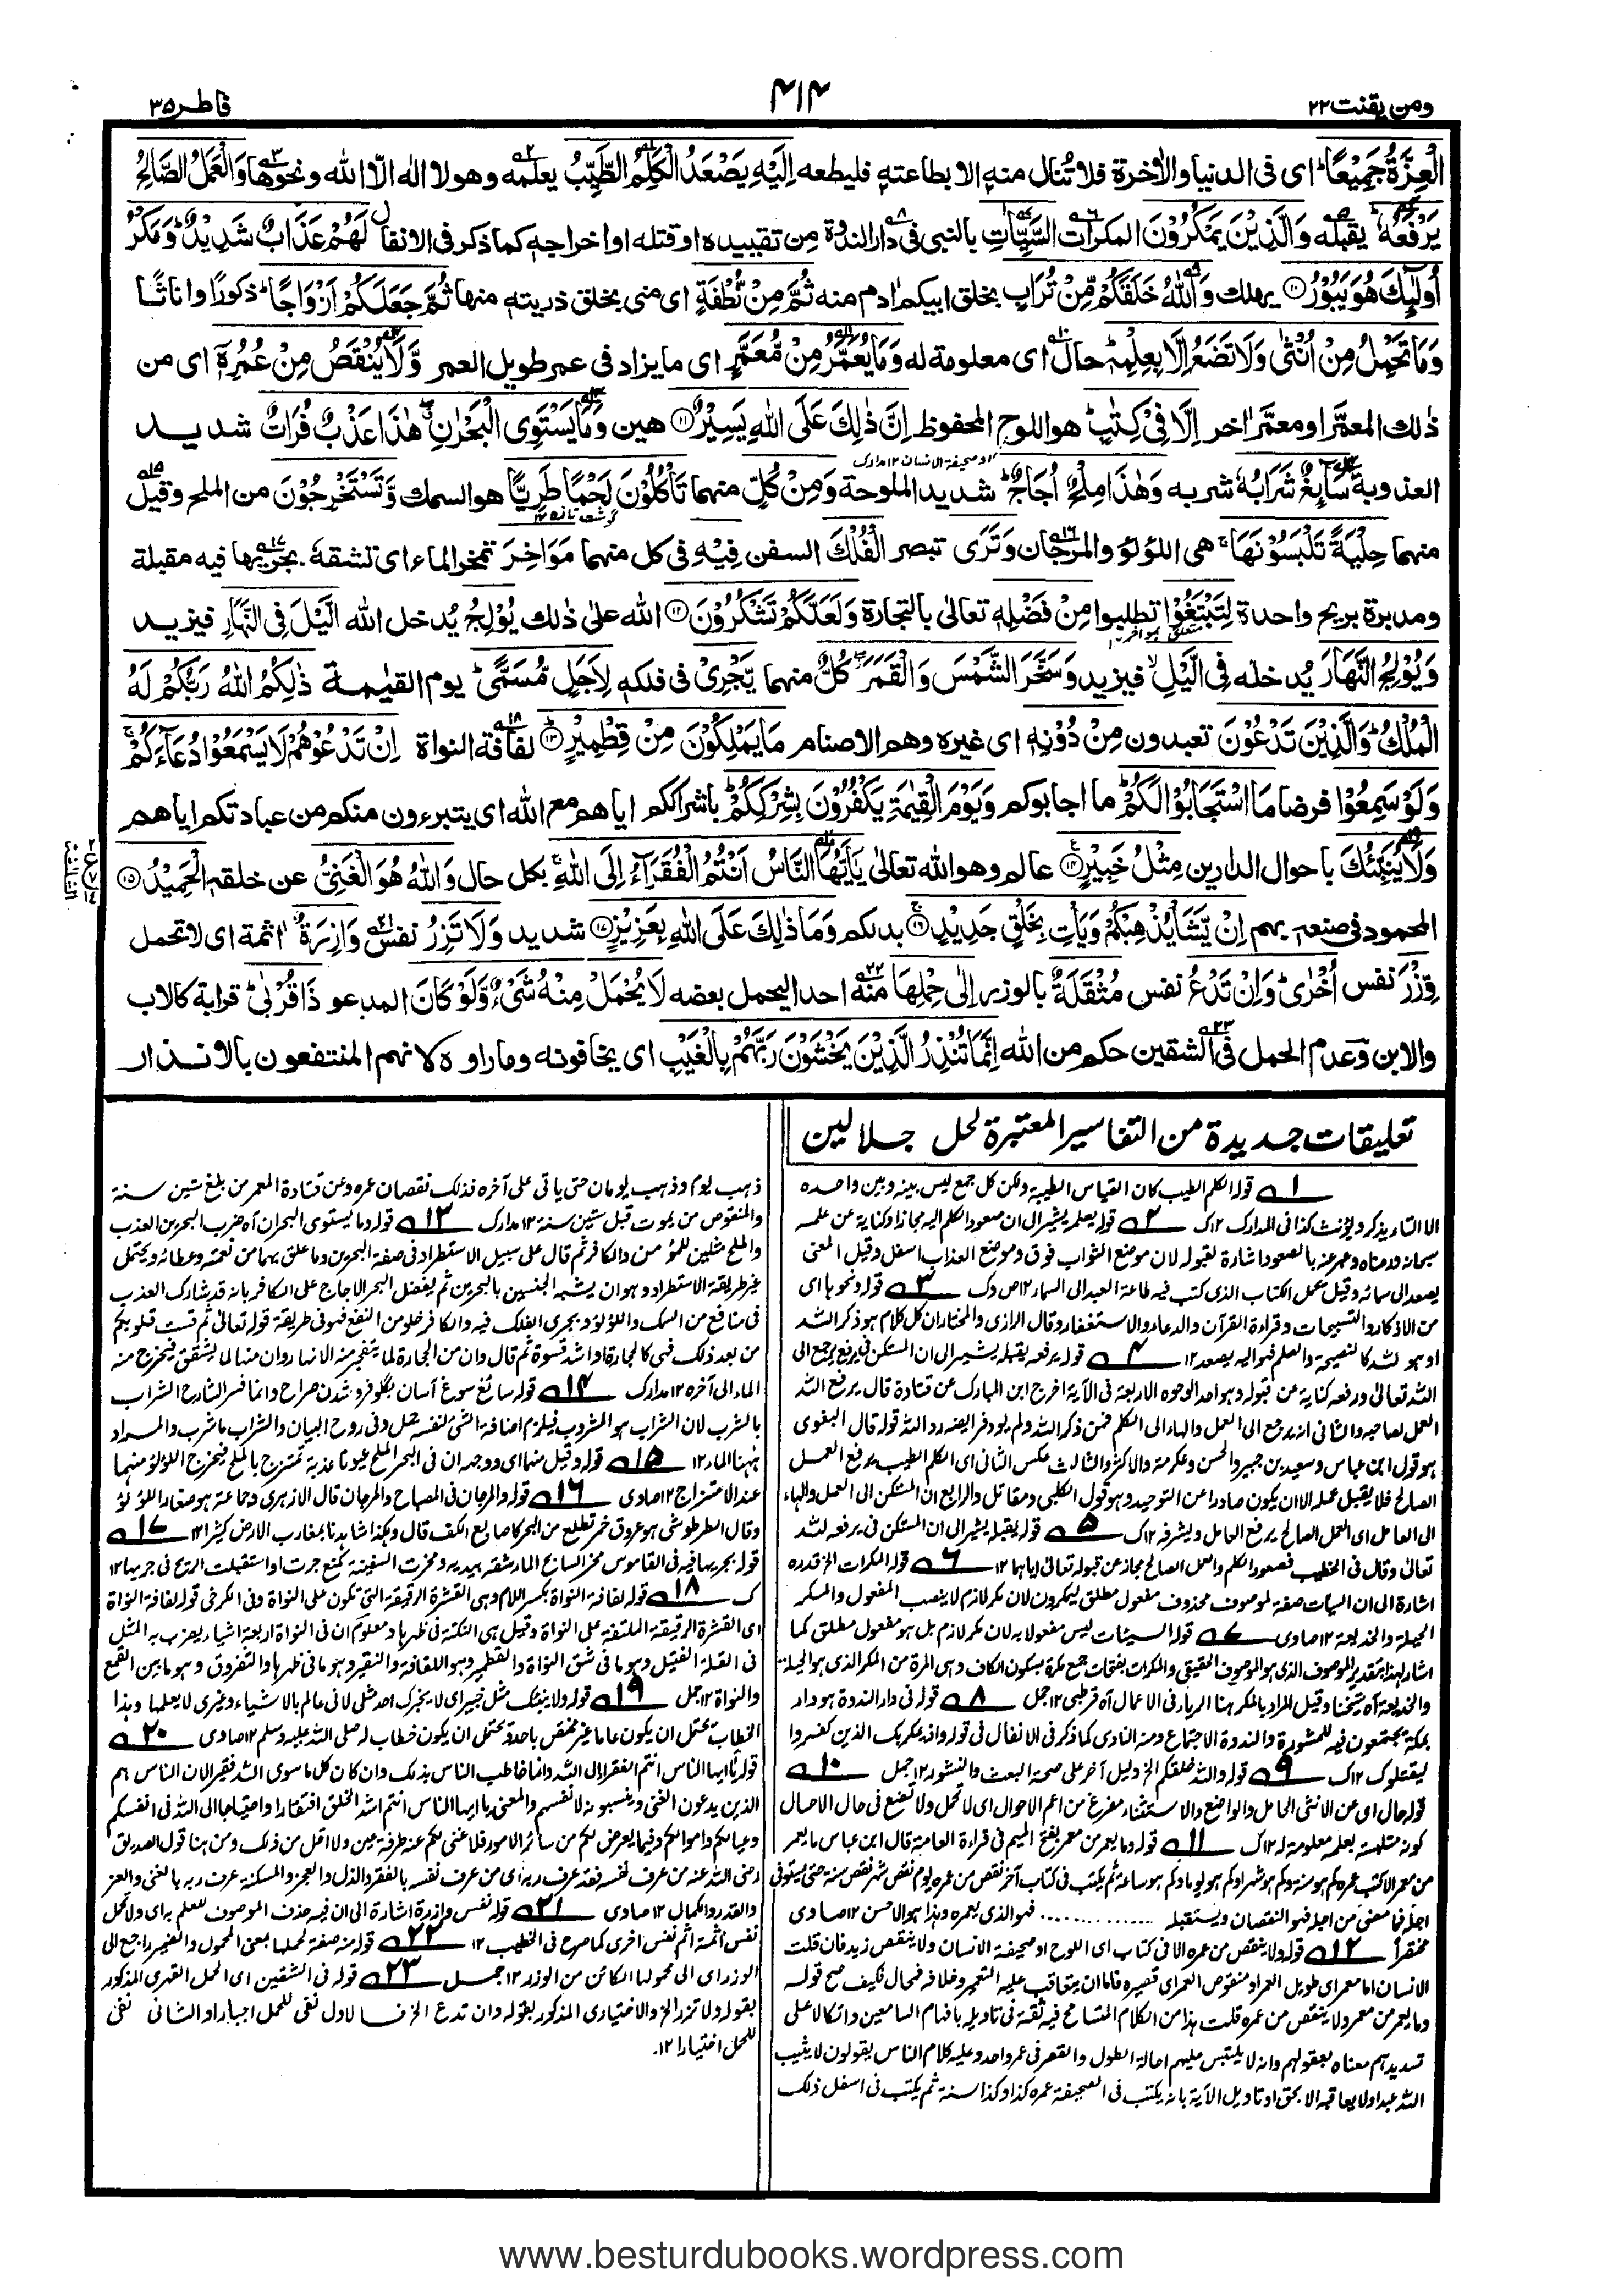 ومن یقنت ۲۲
۴۱۴
فاطر ۳۵
الْعِزَّةُ جَمِيْعًا ؕ ای فی الدنیا والاٰخرة فلا تُنال منه الا بطاعته فلیطعه اِلَيْهِ يَصْعَدُ الْكَلِمُ الطَّيِّبُ یعلمه وهو لا اله الّا الله ونحوها وَالْعَمَلُ الصَّالِحُ
يَرْفَعُهٗ ؕ یقبله وَالَّذِيْنَ يَمْكُرُوْنَ المكرات السَّيِّاٰتِ بالنبی فی دار الندوة من تقییده او قتله او اخراجه كما ذكر فی الانفال لَهُمْ عَذَابٌ شَدِيْدٌ ؕ وَمَكْرُ
اُولٰٓئِكَ هُوَ يَبُوْرُ ۝۱۰ یهلك وَاللّٰهُ خَلَقَكُمْ مِّنْ تُرَابٍ بخلق ابیكم اٰدم منه ثُمَّ مِنْ نُّطْفَةٍ ای منی بخلق ذریته منها ثُمَّ جَعَلَكُمْ اَزْوَاجًا ؕ ذكورًا واناثًا
وَمَا تَحْمِلُ مِنْ اُنْثٰى وَلَا تَضَعُ اِلَّا بِعِلْمِهٖ ؕ حال ای معلومة له وَمَا يُعَمَّرُ مِنْ مُّعَمَّرٍ ای ما یزاد فی عمر طویل العمر وَّلَا يُنْقَصُ مِنْ عُمُرِهٖٓ ای من
ذٰلك المعمَّر او معمَّر اٰخر اِلَّا فِيْ كِتٰبٍ ؕ هو اللوح المحفوظ اِنَّ ذٰلِكَ عَلَى اللّٰهِ يَسِيْرٌ ۝۱۱ هین وَمَا يَسْتَوِى الْبَحْرٰنِ هٰذَا عَذْبٌ فُرَاتٌ شدید
او صحیفة الانسان ۱۲ مدارك
العذوبة سَآئِغٌ شَرَابُهٗ شربه وَهٰذَا مِلْحٌ اُجَاجٌ ؕ شدید الملوحة وَمِنْ كُلٍّ منهما تَاْكُلُوْنَ لَحْمًا طَرِيًّا هو السمك وَّتَسْتَخْرِجُوْنَ من الملح وقیل
گوشت تازه ۱۲
منهما حِلْيَةً تَلْبَسُوْنَهَا ۚ هی اللؤلؤ والمرجان وَتَرَى تبصر الْفُلْكَ السفن فِيْهِ فی كل منهما مَوَاخِرَ تمخر الماء ای تشقه بجریها فیه مقبلة
ومدبرة بریح واحدة لِتَبْتَغُوْا تطلبوا مِنْ فَضْلِهٖ تعالی بالتجارة وَلَعَلَّكُمْ تَشْكُرُوْنَ ۝۱۲ الله علی ذٰلك يُوْلِجُ یُدخل الله الَّيْلَ فِى النَّهَارِ فیزید
متعلق بمواخر ۱۲
وَيُوْلِجُ النَّهَارَ یُدخله فِى الَّيْلِ ۙ فیزید وَسَخَّرَ الشَّمْسَ وَالْقَمَرَ ۖ كُلٌّ منهما يَّجْرِيْ فی فلكه لِاَجَلٍ مُّسَمًّى ؕ یوم القیٰمة ذٰلِكُمُ اللّٰهُ رَبُّكُمْ لَهُ
الْمُلْكُ ؕ وَالَّذِيْنَ تَدْعُوْنَ تعبدون مِنْ دُوْنِهٖ ای غیره وهم الاصنام مَا يَمْلِكُوْنَ مِنْ قِطْمِيْرٍ ۝۱۳ لفافة النواة اِنْ تَدْعُوْهُمْ لَا يَسْمَعُوْا دُعَآءَكُمْ ۚ
وَلَوْ سَمِعُوْا فرضا مَا اسْتَجَابُوْا لَكُمْ ؕ ما اجابوكم وَيَوْمَ الْقِيٰمَةِ يَكْفُرُوْنَ بِشِرْكِكُمْ ؕ باشراككم ایاهم مع الله ای یتبرءون منكم من عبادتكم ایاهم
وَلَا يُنَبِّئُكَ باحوال الدارین مِثْلُ خَبِيْرٍ ۝۱۴ عالم وهو الله تعالی يٰٓاَيُّهَا النَّاسُ اَنْتُمُ الْفُقَرَآءُ اِلَى اللّٰهِ ۚ بكل حال وَاللّٰهُ هُوَ الْغَنِيُّ عن خلقه الْحَمِيْدُ ۝۱۵
المحمود فی صنعه بهم اِنْ يَّشَاْ يُذْهِبْكُمْ وَيَاْتِ بِخَلْقٍ جَدِيْدٍ ۝۱۶ بدلكم وَمَا ذٰلِكَ عَلَى اللّٰهِ بِعَزِيْزٍ ۝۱۷ شدید وَلَا تَزِرُ نفس وَازِرَةٌ اٰثمة ای لا تحمل
وِّزْرَ نفس اُخْرٰى ؕ وَاِنْ تَدْعُ نفس مُثْقَلَةٌ بالوزر اِلٰى حِمْلِهَا منه احدا لیحمل بعضه لَا يُحْمَلْ مِنْهُ شَيْءٌ وَّلَوْ كَانَ المدعو ذَا قُرْبٰى ؕ قرابة كالاب
والابن وعدم الحمل فی الشقین حكم من الله اِنَّمَا تُنْذِرُ الَّذِيْنَ يَخْشَوْنَ رَبَّهُمْ بِالْغَيْبِ ای یخافونه وما راوه لانهم المنتفعون بالانذار
تعلیقات جدیدة من التفاسیر المعتبرة لحل جلالین
۱ قوله الكلم الطیب كان القیاس الطیبة ولكن كل جمع لیس بینه وبین واحده
الا التاء یذكر ویؤنث كذا فی المدارك ۱۲ك ۲ قوله یعلمه یشیر الی ان صعود الكلم الیه مجاز او كنایة عن علمه
سبحانه ورضاه وعبر عنه بالصعود اشارة لقبوله لان موضع الثواب فوق وموضع العذاب اسفل وقیل المعنی
یصعد الی سمائه وقیل یحمل الكتاب الذی كتب فیه طاعة العبد الی السماء ۱۲ص وك ۳ قوله ونحوها ای
من الاذكار والتسبیحات وقراءة القرآن والدعاء والاستغفار وقال الرازی والمختار ان كل كلام هو ذكر الله
او هو لله كالنصیحة والعلم فهو الیه یصعد ۱۲ ۴ قوله یرفعه یقبله یشیر الی ان المستكن فی یرفع یرجع الی
الله تعالی ورفعه كنایة عن قبوله وهو احد الوجوه الاربعة فی الآیة اخرج ابن المبارك عن قتادة قال یرفع الله
العمل لصاحبه والثانی انه یرجع الی العمل والهاء الی الكلم فمن ذكر الله ولم یؤد فرائضه رد الله قوله قال البغوی
هو قول ابن عباس وسعید بن جبیر والحسن وعكرمة والاكثر والثالث عكس الثانی ای الكلم الطیب یرفع العمل
الصالح فلا یقبل عمله الا ان یكون صادرا عن التوحید وهو قول الكلبی ومقاتل والرابع ان المستكن الی العمل والهاء
الی العامل ای العمل الصالح یرفع العامل ویشرفه ۱۲ك ۵ قوله یقبله یشیر الی ان المستكن فی یرفعه لله
تعالی وقال فی الخطیب فصعود الكلم والعمل الصالح مجاز عن قبوله تعالی ایاهما ۱۲ ۶ قوله المكرات الخ قدره
اشارة الی ان السیات صفة لموصوف محذوف مفعول مطلق لیمكرون لان مكر لازم لا ینصب المفعول والمكر
الحیلة والخدیعة ۱۲ صاوی ۷ قوله السیئات لیس مفعولا به لان مكر لازم بل هو مفعول مطلق كما
اشار لهذا بتقدیر الموصوف الذی هو الموصوف الحقیقی والمكرات بفتحات جمع مكرة بسكون الكاف وهی المرة من المكر الذی هو الحیلة
والخدیعة آه شیخنا وقیل المراد بالمكر هنا الریاء فی الاعمال آه قرطبی ۱۲ جمل ۸ قوله فی دار الندوة هو دار
بمكة یجتمعون فیه للمشورة والندوة الاجتماع ومنه النادی كما ذكر فی الانفال فی قوله واذ یمكر بك الذین كفروا
لیقتلوك ۱۲ك ۹ قوله والله خلقكم الخ دلیل آخر علی صحة البعث والنشور ۱۲ جمل ۱۰
قوله حال ای عن الانثی الحامل والواضع والاستثناء مفرغ من اعم الاحوال ای لا تحمل ولا تضع فی حال الا حال
كونه متلبسة بعلمه معلومة له ۱۲ك ۱۱ قوله وما یعمر من معمر بفتح المیم فی قراءة العامة قال ابن عباس ما یعمر
من معمر الا كتب عمره كم هو سنة وكم هو شهرا وكم هو یوما وكم هو ساعة ثم یكتب فی كتاب آخر نقص من عمره یوم نقص شهر نقص سنة حتی یستوفی
اجله فما مضی من اجله فهو النقصان ویستقبله ............... فهو الذی یعمره وهذا هو الاحسن ۱۲ صاوی
مختقراً ۱۲ قوله ولا ینقص من عمره الا فی كتاب ای اللوح او صحیفة الانسان ولا ینقص زید فان قلت
الانسان اما معمر ای طویل العمر او منقوص العمر ای قصیره فاما ان یتعاقب علیه التعمیر وخلافه فمحال فكیف صح قوله
وما یعمر من معمر ولا ینقص من عمره قلت هذا من الكلام المتسامح فیه ثقة فی تاویله بافهام السامعین واتكالا علی
تسدیدهم معناه بعقولهم وانه لا یلتبس علیهم احالة الطول والقصر فی عمر واحد وعلیه كلام الناس یقولون لا یثیب
الله عبدا ولا یعاقبه الا بحق او تاویل الآیة بانه یكتب فی الصحیفة عمره كذا وكذا سنة ثم یكتب فی اسفل ذلك
ذهب یوم وذهب یومان حتی یاتی علی آخره فذلك نقصان عمره وعن قتادة المعمر من بلغ ستین سنة
والمنقوص من یموت قبل ستین سنة ۱۲ مدارك ۱۳ قوله وما یستوی البحران آه ضرب البحرین العذب
والملح مثلین للمؤمن والكافر ثم قال علی سبیل الاستطراد فی صفة البحرین وما علق بهما من نعمته وعطائه ویحتمل
غیر طریقة الاستطراد وهو ان یشبه الجنسین بالبحرین ثم یفضل البحر الاجاج علی الكافر بانه قد شارك العذب
فی منافع من السمك واللؤلؤ وجری الفلك فیه والكافر خلو من النفع فهو فی طریقة قوله تعالی ثم قست قلوبكم
من بعد ذلك فهی كالحجارة او اشد قسوة ثم قال وان من الحجارة لما یتفجر منه الانهار وان منها لما یشقق فیخرج منه
الماء الی آخره ۱۲ مدارك ۱۴ قوله سائغ سوغ آسان بگلو فرو شدن صراح وانما فسر الشارح الشراب
بالشرب لان الشراب هو المشروب فیلزم اضافة الشئ لنفسه جمل وفی روح البیان والشراب ما شرب والمراد
ههنا الماء ۱۲ ۱۵ قوله وقیل منهما ای ووجه ان فی البحر الملح عیونا عذبة تمتزج بالملح فیخرج اللؤلؤ منهما
عند الامتزاج ۱۲ صاوی ۱۶ قوله والمرجان فی المصباح والمرجان قال الازهری وجماعة هو صغار اللؤلؤ
وقال الطرطوشی هو عروق حمر تطلع من البحر كاصابع الكف قال وهكذا شاهدنا بمغارب الارض كثیرا ۱۲ ۱۷
قوله بجریها فیه فی القاموس مخر السابح الماء شقه بیدیه ومخرت السفینة كمنع جرت او استقبلت الریح فی جریها ۱۲
ك ۱۸ قوله لفافة النواة بكسر اللام وهی القشرة الرقیقة التی تكون علی النواة وفی الكرخی قوله لفافة النواة
ای القشرة الرقیقة الملتفة علی النواة وقیل هی النكتة فی ظهرها ومعلوم ان فی النواة اربعة اشیاء یضرب بها المثل
فی القلة الفتیل وهو ما فی شق النواة والقطمیر وهو اللفافة والنقیر وهو ما فی ظهرها والثفروق وهو ما بین القمع
والنواة ۱۲ جمل ۱۹ قوله ولا ینبئك مثل خبیر ای لا یخبرك احد مثلی لانی عالم بالاشیاء وغیری لا یعلمها وهذا
الخطاب یحتمل ان یكون عاما غیر مختص باحد ویحتمل ان یكون خطاب له صلی الله علیه وسلم ۱۲ صاوی ۲۰
قوله یا ایها الناس انتم الفقراء الی الله وانما خاطب الناس بذلك وان كان كل ما سوی الله فقیر الان الناس هم
الذین یدعون الغنی وینسبونه لانفسهم والمعنی یا ایها الناس انتم اشد الخلق افتقارا واحتیاجا الی الله فی انفسكم
وعیالكم واموالكم وفیما یعرض لكم من سائر الامور فلا غنی لكم عنه طرفة عین ولا اقل من ذلك ومن هنا قول الصدیق
رضی الله عنه من عرف نفسه فقد عرف ربه ای من عرف نفسه بالفقر والذل والعجز والمسكنة عرف ربه بالغنی والعز
والقدرة والكمال ۱۲ صاوی ۲۱ قوله نفس وازرة اشارة الی ان فیه حذف الموصوف للعلم به ای ولا تحمل
نفس آثمة اثم نفس اخری كما صرح فی الخطیب ۱۲ ۲۲ قوله منه صفة لحملها بمعنی المحمول والضمیر راجع الی
الوزر ای الی محمولها الكائن من الوزر ۱۲ جمل ۲۳ قوله فی الشقین ای الحمل القهری المذكور
بقوله ولا تزر الخ والاختیاری المذكور بقوله وان تدع الخ فالاول نفی للحمل اجبارا والثانی نفی
للحمل اختیارا ۱۲.
www.besturdubooks.wordpress.com